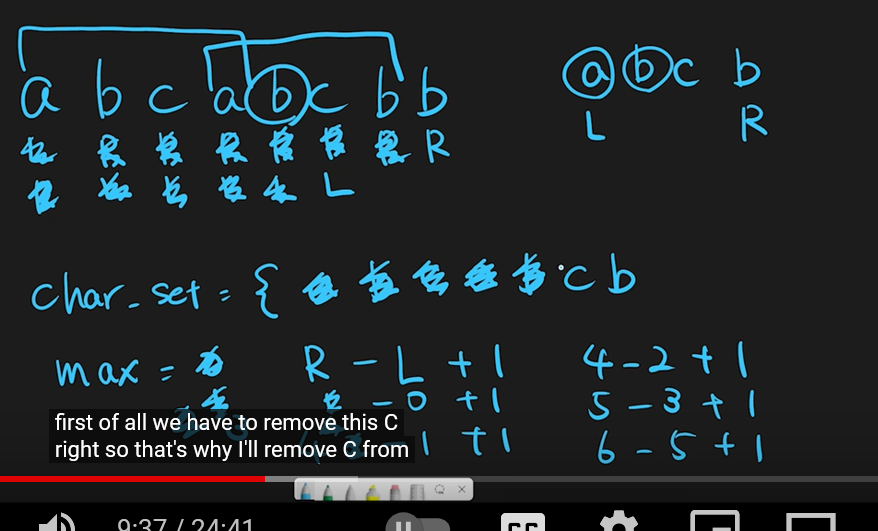 a b c a b c b b
a b c b
R
L R
L
char_set = { c b
max = R - L + 1 4 - 2 + 1
- 0 + 1 5 - 3 + 1
- 1 + 1 6 - 5 + 1
first of all we have to remove this C
right so that's why I'll remove C from
9:37 / 24:41
CC